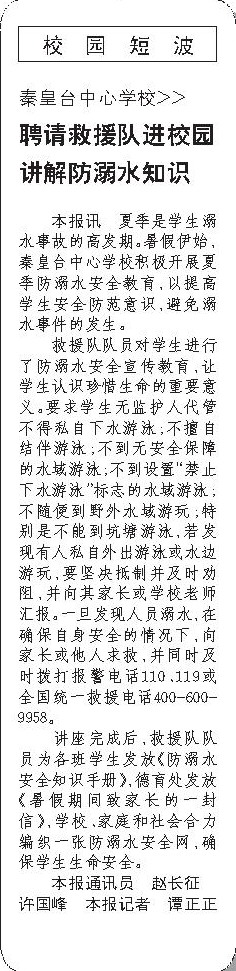 校园短波
秦皇台中心学校>>
聘请救援队进校园
讲解防溺水知识
本报讯　夏季是学生溺
水事故的高发期。暑假伊始,
秦皇台中心学校积极开展夏
季防溺水安全教育,以提高
学生安全防范意识,避免溺
水事件的发生。
救援队队员对学生进行
了防溺水安全宣传教育,让
学生认识珍惜生命的重要意
义。要求学生无监护人代管
不得私自下水游泳;不擅自
结伴游泳;不到无安全保障
的水域游泳;不到设置“禁止
下水游泳”标志的水域游泳;
不随便到野外水域游玩;特
别是不能到坑塘游泳,若发
现有人私自外出游泳或水边
游玩,要坚决抵制并及时劝
阻,并向其家长或学校老师
汇报。一旦发现人员溺水,在
确保自身安全的情况下,向
家长或他人求救,并同时及
时拨打报警电话110、119或
全国统一救援电话400-600-
9958。
讲座完成后,救援队队
员为各班学生发放《防溺水
安全知识手册》,德育处发放
《暑假期间致家长的一封
信》,学校、家庭和社会合力
编织一张防溺水安全网,确
保学生生命安全。
本报通讯员　赵长征
许国峰　本报记者　谭正正